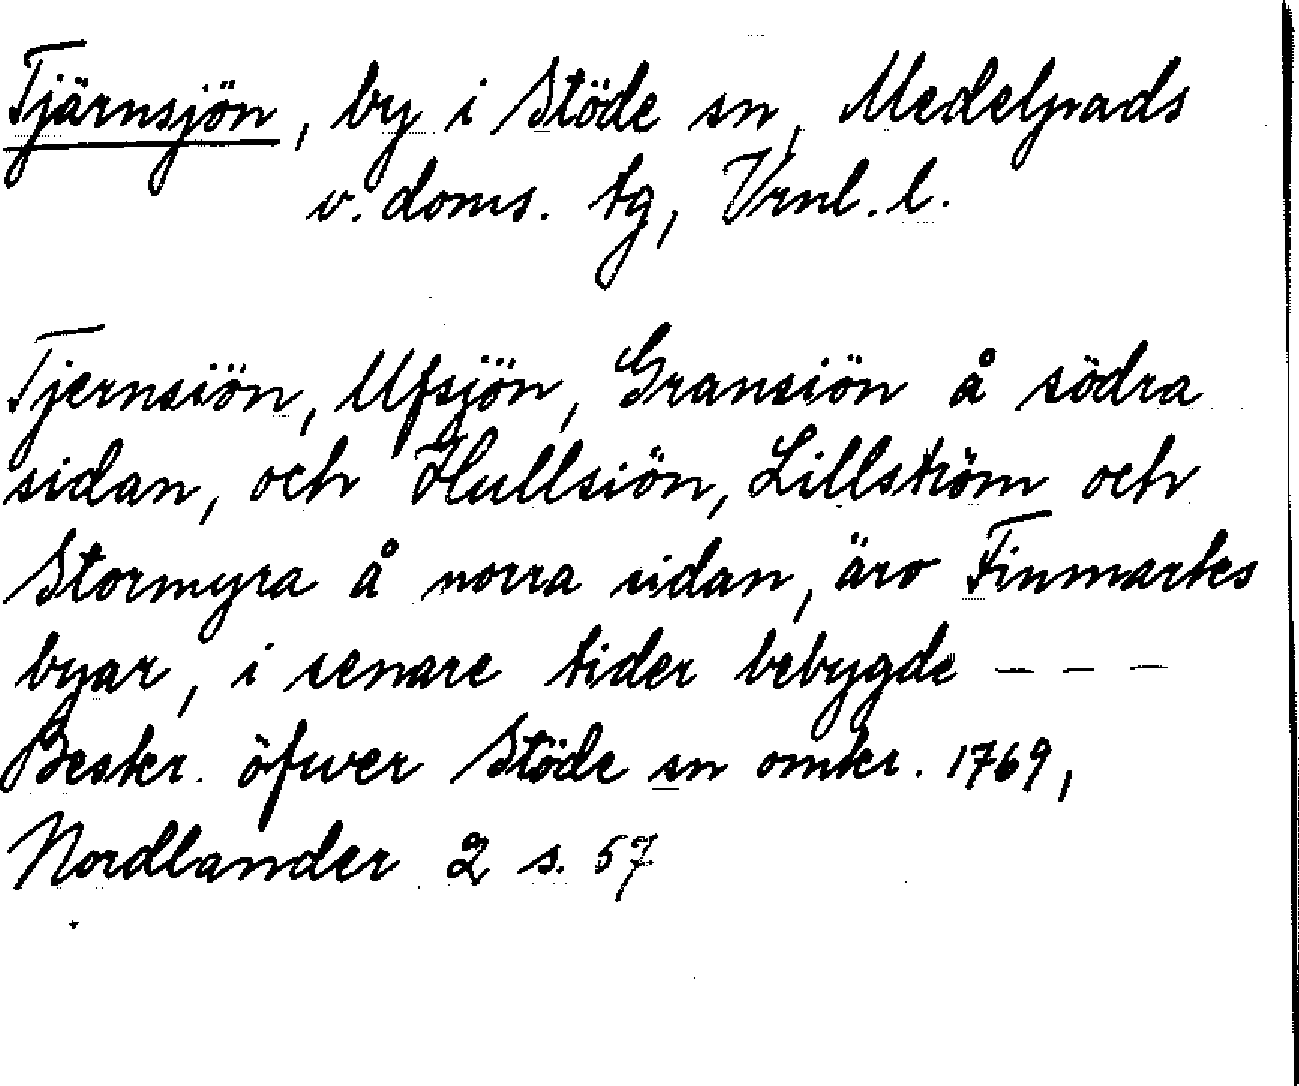 Tjärnsjön, by i Stöde sn, Medelpads
v. doms. tg, Vrnl. l.
Tjernsiön, Ufsjön, Gransiön å södra
sidan, och Hullsiön, Lillström och
Stormyra å norra sidan, äro Finmarks
byar, i senare tider bebygde - - -
Beskr. öfwer Stöde sn omkr. 1769,
Nordlander 2 s. 57